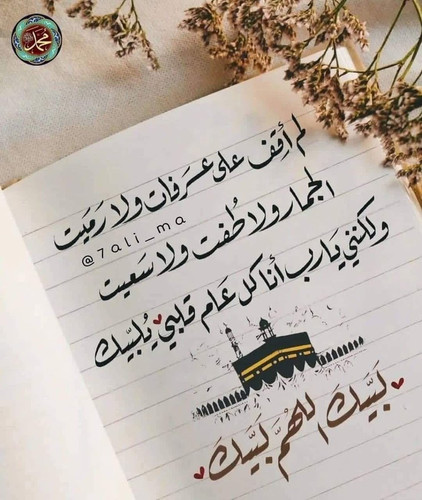 محمد
لم أقِف على عَرفات ولا رَميت
الجمار ولا طُفت ولا سَعيت
@7ali_ma
ولكنني يَارب أنا كل عَام قلبي يُلبّيك
لبّيكَ اللهُمَّ لبّيكَ